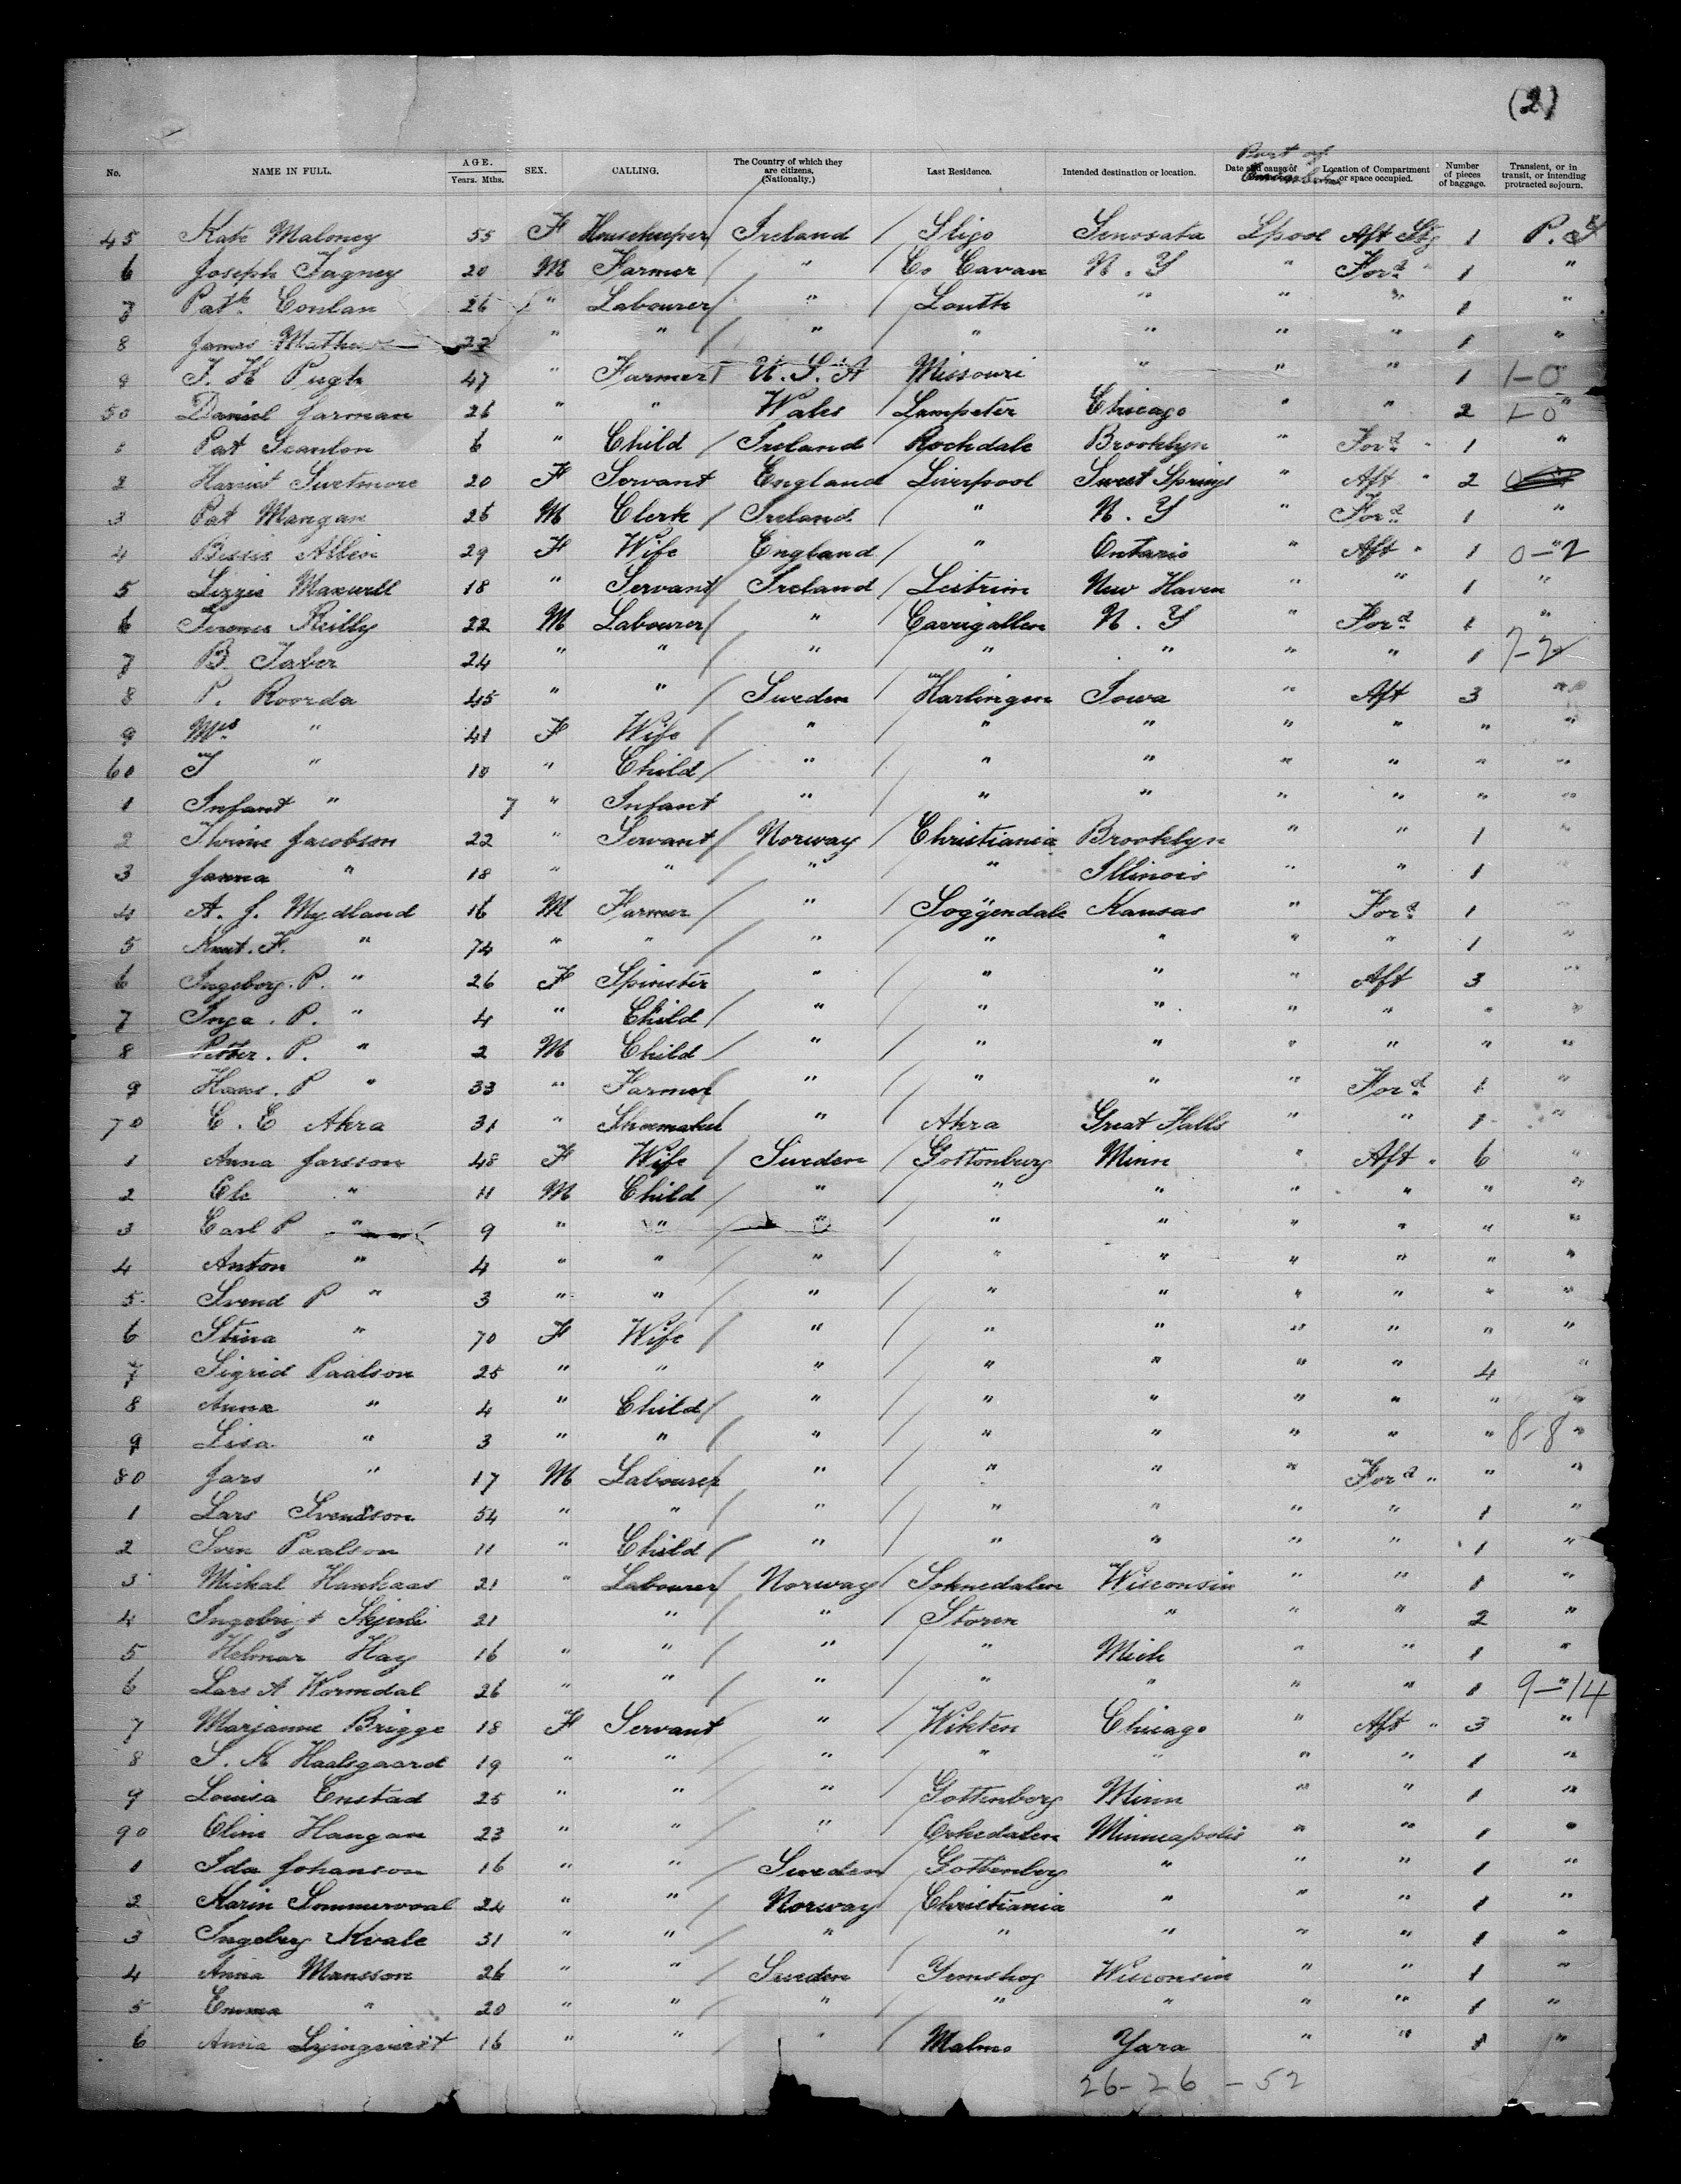 (2)
Port of
No. NAME IN FULL. AGE. Years. Mths. SEX. CALLING. The Country of which they are citizens. (Nationalty.) Last Residence. Intended destination or location. Date and cause of Location of Compartment or space occupied. Number of pieces of baggage. Transient, or in transit, or intending protracted sojourn.
45 Kate Maloney 55 F Housekeeper Ireland Sligo Lpool Aft Stg 1 P. S
6 Joseph Fagney 20 M Farmer " Co Cavan N. Y " Ford " 1 "
7 Patk Conlan 26 " Labourer " Louth " " " 1 "
8 James Mathews 22 " " " " " " " 1 "
9 J. H Pugh 47 " Farmer U. S. A Missouri " " " 1 1-0
50 Daniel Jarman 26 " " Wales Lampeter Chicago " " 2 1-0 "
1 Pat Scanlon 6 " Child Ireland Rochdale Brooklyn " Ford " 1 "
2 Harriet Swetmore 20 F Servant England Liverpool Sweet Springs " Aft " 2
3 Pat Mangan 25 M Clerk Ireland " N. Y " Ford 1 "
4 Bessie Allen 29 F Wife England " Ontario " Aft " 1 0-"2
5 Lizzie Maxwell 18 " Servant Ireland Leitrim New Haven " " 1 "
6 Terence Reilly 22 M Labourer " Carrigallen N. Y " Ford 1 "
7 B. Taber 24 " " " " " " " 1 7-2
8 P. Roorda 45 " " Sweden Harlingen Iowa " Aft 3 "
9 Mrs " 41 F Wife " " " " " " "
60 T " 10 " Child " " " " " " "
1 Infant " 7 " Infant " " " " " " "
2 Thrine Jacobson 22 " Servant Norway Christiania Brooklyn " " 1 "
3 Janna " 18 " " " " Illinois " " 1 "
4 A. J. Mydland 16 M Farmer " Soggendale Kansas " Ford 1 "
5 Knut. F. " 74 " " " " " " " 1 "
6 Ingeborg. P. " 26 F Spinster " " " " Aft 3 "
7 Inga. P. " 4 " Child " " " " " " "
8 Peter. P. " 2 M Child " " " " " " "
9 Hans. P " 33 " Farmer " " " " Ford 1 "
70 C. E Akra 31 " Shoemaker " Akra Great Falls " " 1 "
1 Anna Jarsson 48 F Wife Sweden Gottonburg Minn " Aft " 6 "
2 Ole " 11 M Child " " " " " " "
3 Carl P " 9 " " " " " " " " "
4 Anton " 4 " " " " " " " " "
5 Svend P " 3 " " " " " " " " "
6 Stina " 70 F Wife " " " " " " "
7 Sigrid Paalson 25 " " " " " " " 4 "
8 Anna " 4 " Child " " " " " " "
9 Lisa " 3 " " " " " " " " 8-8 "
80 Jars " 17 M Labourer " " " " Ford " " "
1 Lars Svendson 54 " " " " " " " 1 "
2 Sven Paalson 11 " Child " " " " " 1 "
3 Mickal Hankaas 21 " Labourer Norway Soknedalen Wisconsin " " 1 "
4 21 " " Storen " " " 2 "
5 Helmar Hay 16 " " " " Mich " " 1 "
6 Lars A Wormdal 26 " " " " " " " 1 9-"14
7 Marianne Brigge 18 F Servant " Wikten Chicago " Aft " 3 "
8 S. K Haalsgaard 19 " " " " " " " 1 "
9 Louisa Enstad 25 " " " Gottenborg Minn " " 1 "
90 Oline Haugan 23 " " " Orkedalen Minneapolis " " 1 "
1 Ida Johanson 16 " " Sweden Gottenberg " " " 1 "
2 Karin Sommervoal 24 " " Norway Christiania " " " 1 "
3 Ingeborg Kvale 31 " " " " " " " 1 "
4 Anna Mansson 26 " " Sweden Yemshog Wisconsin " " 1 "
5 Emma " 20 " " " " " " " 1 "
6 Anna 16 " " " Malmo Yara " " 1 "
26-26-52